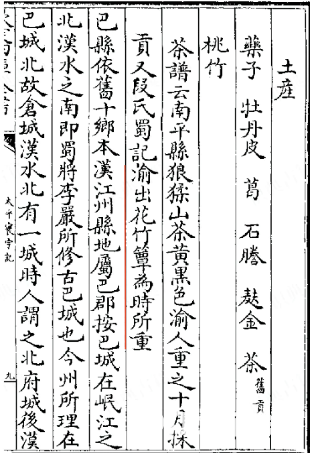 土産
藥子 牡丹皮 葛 石膽 麩金 茶舊貢
桃竹
茶譜云南平縣狼猱山茶黄黒色渝人重之十月採
貢又段氏蜀記渝出花竹簟為時所重
巴縣依舊十鄉本漢江州縣地屬巴郡按巴城在岷江之
北漢水之南即蜀將李嚴所修古巴城也今州所理在
巴城北故倉城漢水北有一城時人謂之北府城後漢
太平寰宇記
九